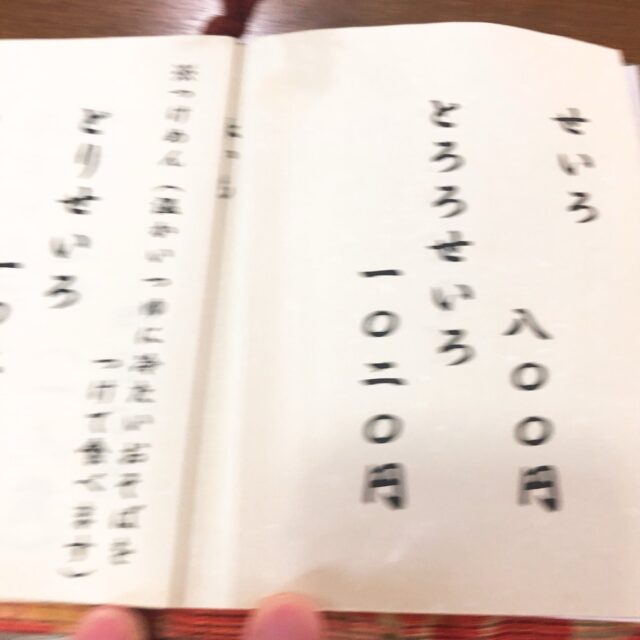 せいろ
八〇〇円
とろろせいろ
一〇二〇円
つけめん(温かいつゆに冷たいおそばを
つけて食べます)
とりせいろ